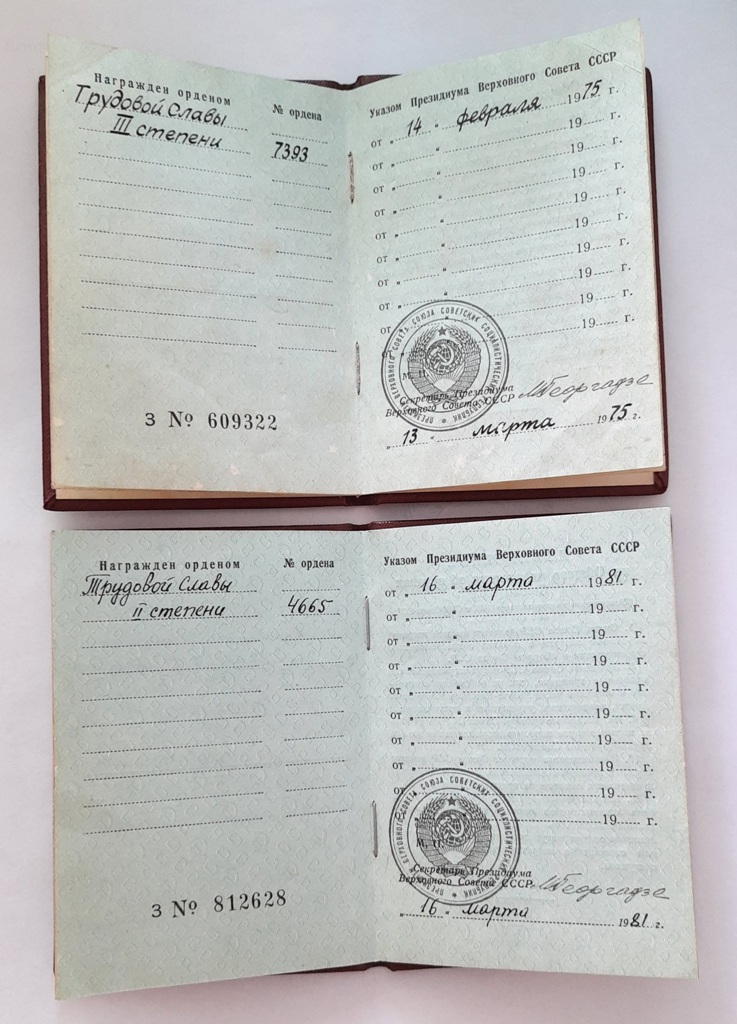 Награжден орденом
№ ордена
Трудовой Славы
III степени
7393
З № 609322
Указом Президиума Верховного Совета СССР
от „ 14 “ февраля 1975 г.
от „ “ 19 г.
от „ “ 19 г.
от „ “ 19 г.
от „ “ 19 г.
от „ “ 19 г.
от „ “ 19 г.
от „ “ 19 г.
от „ “ 19 г.
от 19 г.
М. П.
Секретарь Президиума
Верховного Совета СССР
МГеоргадзе
„ 13 “ марта 1975 г.
Награжден орденом
№ ордена
Трудовой Славы
II степени
4665
З № 812628
Указом Президиума Верховного Совета СССР
от „ 16 “ марта 1981 г.
от „ “ 19 г.
от „ “ 19 г.
от „ “ 19 г.
от „ “ 19 г.
от „ “ 19 г.
от „ “ 19 г.
от „ “ 19 г.
от „ “ 19 г.
19 г.
ПРЕЗИДИУМ ВЕРХОВНОГО СОВЕТА СОЮЗА СОВЕТСКИХ СОЦИАЛИСТИЧЕСКИХ РЕСПУБЛИК
М. П.
Секретарь Президиума
Верховного Совета СССР
МГеоргадзе
„ 16 “ марта 1981 г.